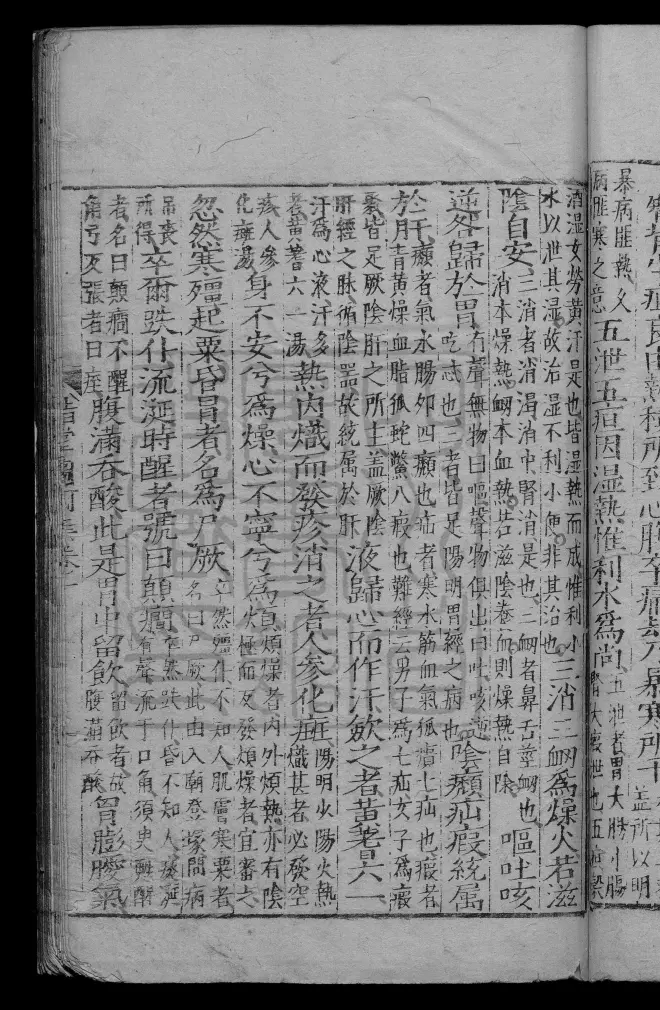 胃脘
暴病非熱久
病非寒之意五泄五疸因湿熱惟利水為尚五泄者胃大腸小腸
消湿女勞黄汗是也皆湿熱而成惟利小
水以泄其湿故治湿不利小便非其治也三消三衂為燥火若滋
陰自安三消者消渴消中腎消是也三衂者鼻舌壅衂也消本燥熱衂本血熱若滋陰養血則燥熱自除嘔吐咳
逆各歸於胃有聲無物曰嘔聲物俱出曰吐咳逆吃忒也三者皆足陽明胃經之病也陰癲疝瘕統属
於肝癲者氣水腸夘四癲也疝者寒水筋血氣狐㿉七疝也瘕者青黄燥血脂狐蛇鱉八瘕也難經云男子為七疝女子為瘕
聚皆足厥陰肝之所主盖厥陰
肝經之脉循陰器故統属於肝液歸心而作汗歛之者黄茋六一
汗為心液汗多
者黄耆六一湯熱内熾而發疹消之者人参化斑陽明少陽火熱熾甚者必發空
疹人參
化斑湯身不安兮為燥心不寧兮為煩煩燥者内外煩熱亦有陰火極而反發煩燥者宜審之
忽然寒殭起粟昏冒者名為尸厥卒然殭仆不知人肌膚寒栗者名曰尸厥此由入廟登塚問病
吊喪
所得卒爾跌仆流涎時醒者號曰顛癇卒然跌仆昏不知人痰涎有聲流于口角須史醒醒
者名曰顛癇不醒
角弓反張者曰痓腹滿吞酸此是胃中留飲留飲者故腹滿吞酸胷膨腹氣